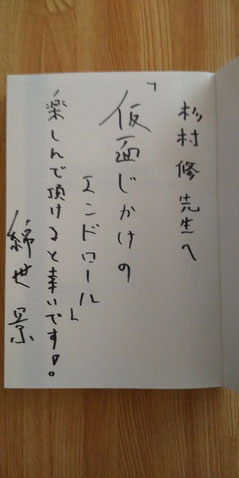 杉村修先生へ
「仮面じかけの
エンドロール」
楽しんで頂けると幸いです!。
綿世景